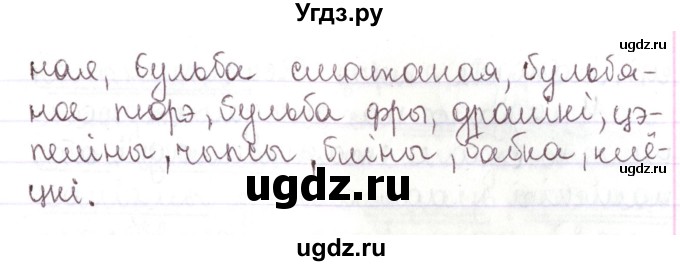 Угдз.ру
ugdz.ru
ugdz.ru
ная, бульба смажаная, бульбя-
ное пюрэ, бульба фры, дранікі, цэ-
пеліны, чыпсы, бліны, бабка, клё-
цкі.
ugdz.ru
ugdz.ru
ugdz.ru
ugdz.ru